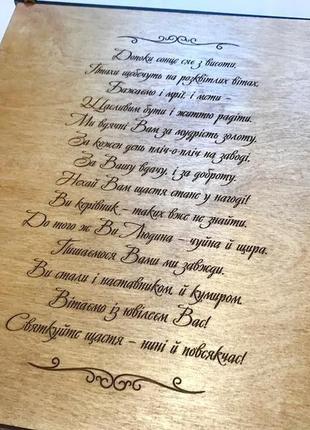 Допоки сонце сяє з висоти,
Птахи щебечуть на розквітлих вітах,
Бажаємо і мрії, і мети –
Щасливим бути і життю радіти.
Ми вдячні Вам за мудрість золоту,
За кожен день пліч-о-пліч на заводі.
За Вашу вдачу, і за доброту.
Нехай Вам щастя стане у нагоді!
Ви керівник – таких вже не знайти.
До того ж Ви Людина – чуйна й щира.
Пишаємося Вами ми завжди.
Ви стали і наставником, й кумиром.
Вітаємо із ювілеєм Вас!
Святкуйте щастя – нині й повсякчас!